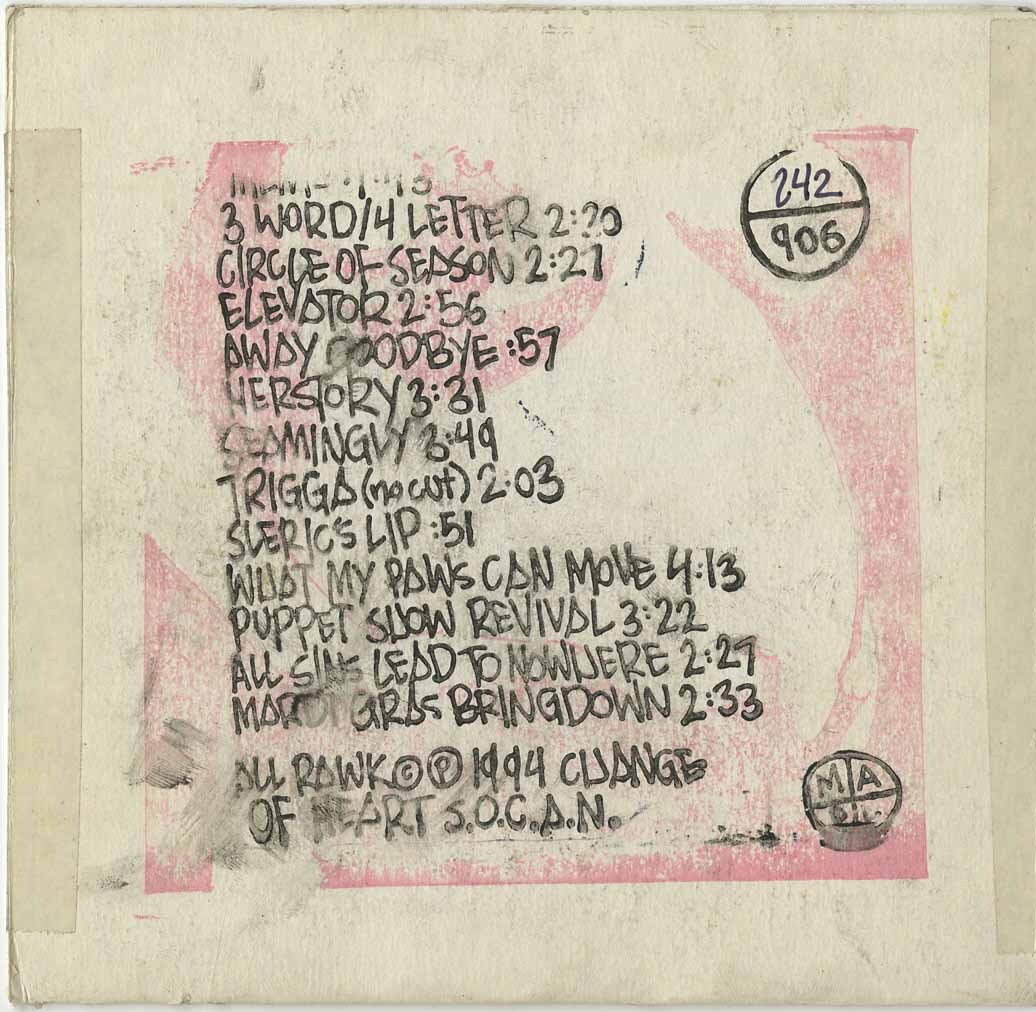 3 WORD/4 LETTER 2:20
CIRCLE OF SEASON 2:27
ELEVATOR 2:56
AWAY GOODBYE :57
HERSTORY 3:31
SEAMINGLY 3:49
TRIGGA (no cut) 2:03
SLERIC'S LIP :51
WHAT MY PAWS CAN MOVE 4:13
PUPPET SHOW REVIVAL 3:22
ALL SINS LEAD TO NOWHERE 2:27
MARDI GRAS BRINGDOWN 2:33
ALL RAWK © ℗ 1994 CHANGE
OF HEART S.O.C.A.N.
242
906
M A